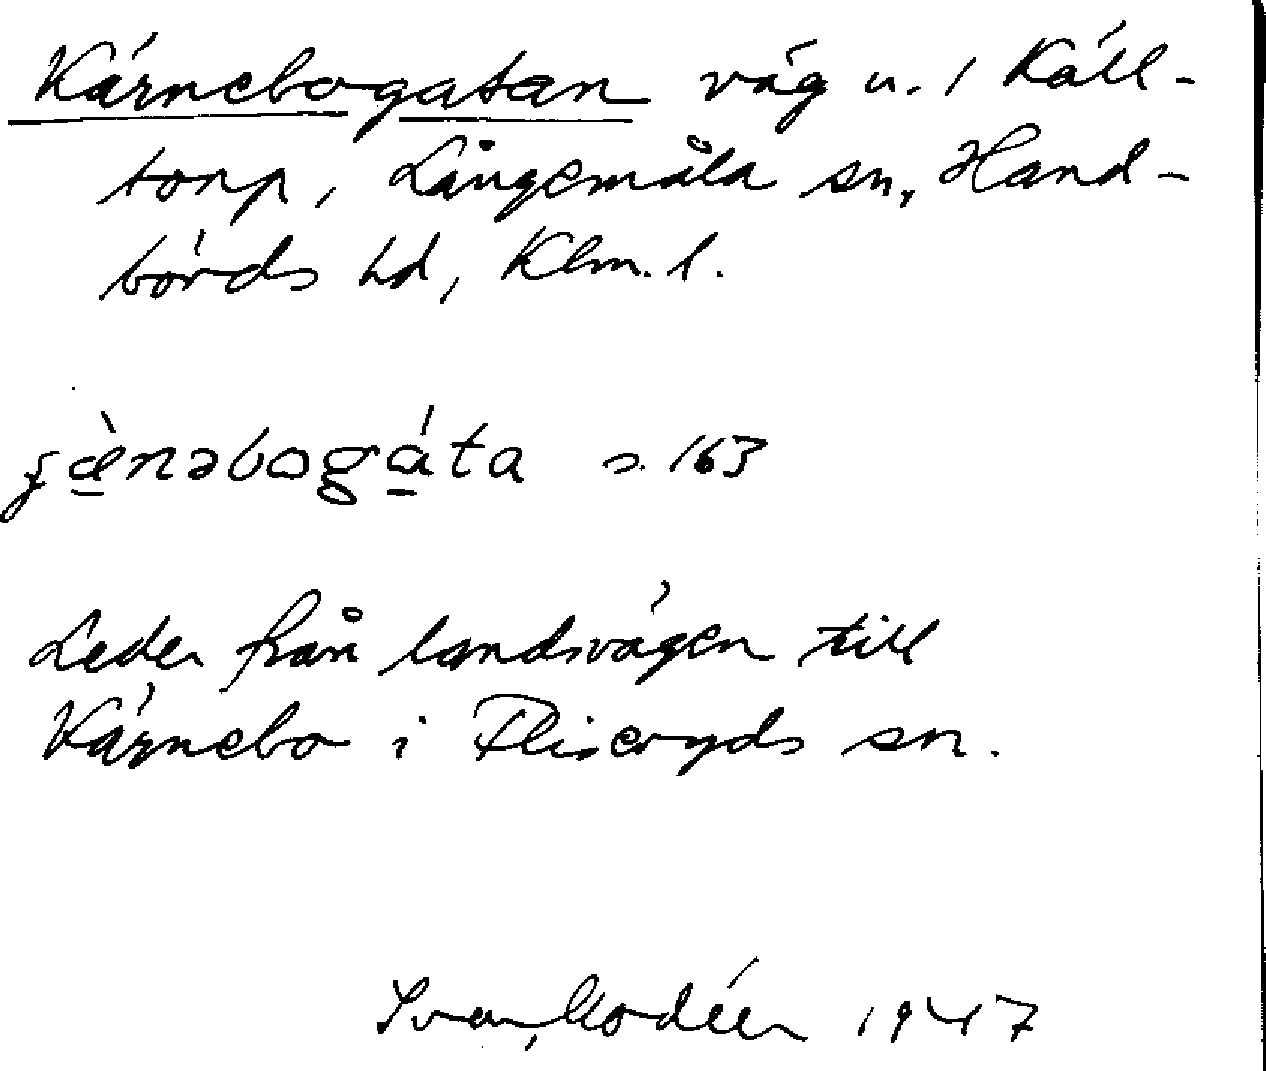 Kärnebogatan väg u. / Käll-
torp, Långemåla sn, Hand-
börds hd, Klm. l.
s. 163
Leder från landsvägen till
Kärnebo i Fliseryds sn.
Ivar Modéer 1947